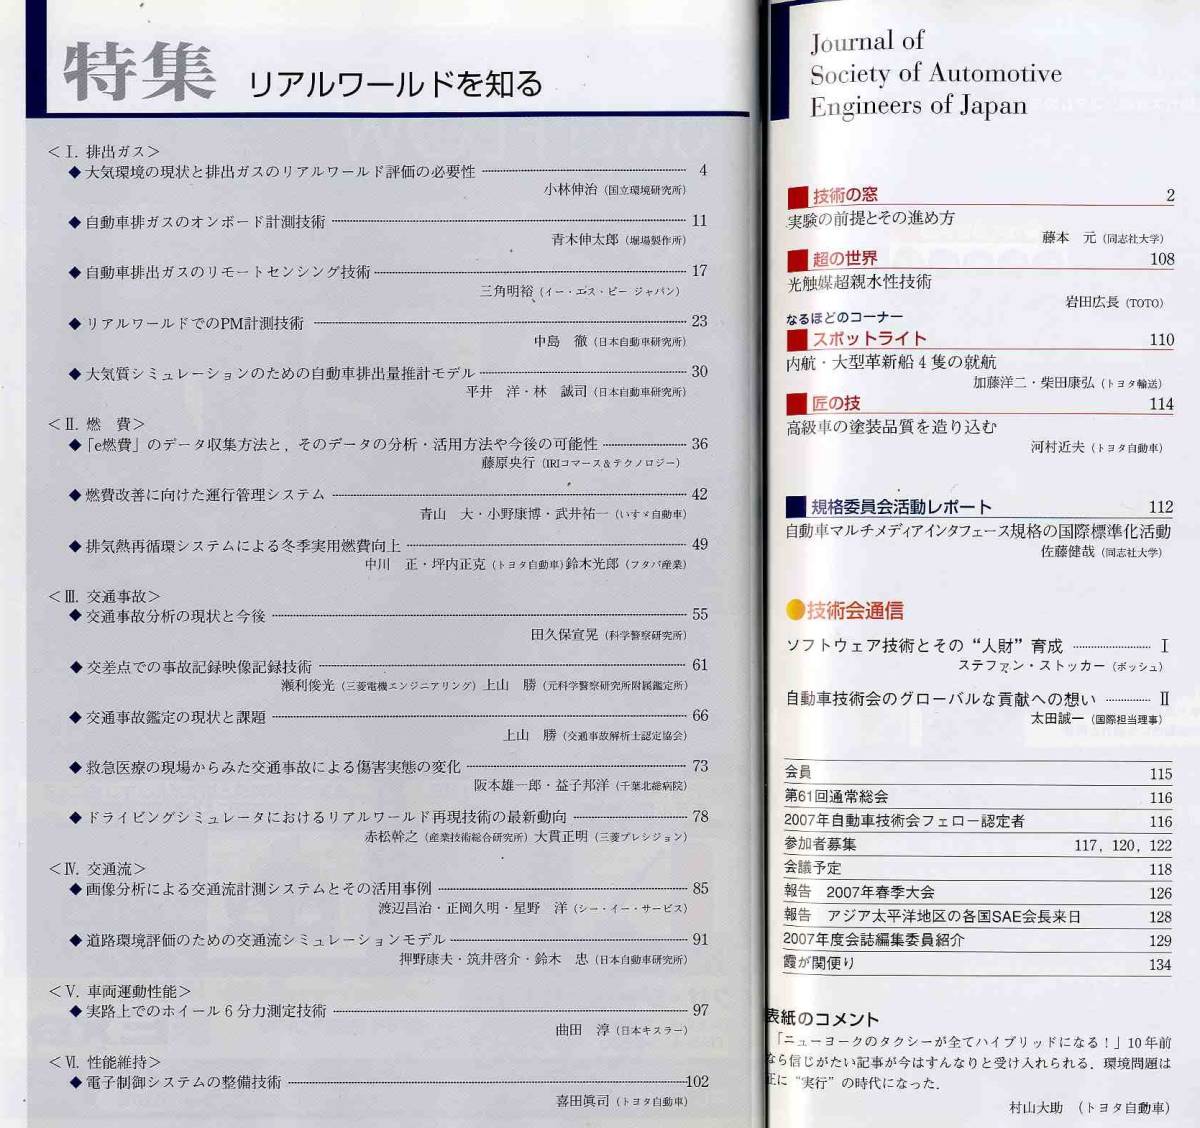 特集 リアルワールドを知る
＜Ⅰ. 排出ガス＞
◆大気環境の現状と排出ガスのリアルワールド評価の必要性 4
小林伸治（国立環境研究所）
◆自動車排ガスのオンボード計測技術 11
青木伸太郎（堀場製作所）
◆自動車排出ガスのリモートセンシング技術 17
三角明裕（イー・エス・ピー ジャパン）
◆リアルワールドでのPM計測技術 23
中島 徹（日本自動車研究所）
◆大気質シミュレーションのための自動車排出量推計モデル 30
平井 洋・林 誠司（日本自動車研究所）
＜Ⅱ. 燃 費＞
◆「e燃費」のデータ収集方法と，そのデータの分析・活用方法や今後の可能性 36
藤原央行（IRIコマース＆テクノロジー）
◆燃費改善に向けた運行管理システム 42
青山 大・小野康博・武井祐一（いすゞ自動車）
◆排気熱再循環システムによる冬季実用燃費向上 49
中川 正・坪内正克（トヨタ自動車）鈴木光郎（フタバ産業）
＜Ⅲ. 交通事故＞
◆交通事故分析の現状と今後 55
田久保宣晃（科学警察研究所）
◆交差点での事故記録映像記録技術 61
瀬利俊光（三菱電機エンジニアリング）上山 勝（元科学警察研究所附属鑑定所）
◆交通事故鑑定の現状と課題 66
上山 勝（交通事故解析士認定協会）
◆救急医療の現場からみた交通事故による傷害実態の変化 73
阪本雄一郎・益子邦洋（千葉北総病院）
◆ドライビングシミュレータにおけるリアルワールド再現技術の最新動向 78
赤松幹之（産業技術総合研究所）大貫正明（三菱プレシジョン）
＜Ⅳ. 交通流＞
◆画像分析による交通流計測システムとその活用事例 85
渡辺昌治・正岡久明・星野 洋（シー・イー・サービス）
◆道路環境評価のための交通流シミュレーションモデル 91
押野康夫・筑井啓介・鈴木 忠（日本自動車研究所）
＜Ⅴ. 車両運動性能＞
◆実路上でのホイール6分力測定技術 97
曲田 淳（日本キスラー）
＜Ⅵ. 性能維持＞
◆電子制御システムの整備技術 102
喜田眞司（トヨタ自動車）
Journal of
Society of Automotive
Engineers of Japan
技術の窓 2
実験の前提とその進め方
藤本 元（同志社大学）
超の世界 108
光触媒超親水性技術
岩田広長（TOTO）
なるほどのコーナー
スポットライト 110
内航・大型革新船4隻の就航
加藤洋二・柴田康弘（トヨタ輸送）
匠の技 114
高級車の塗装品質を造り込む
河村近夫（トヨタ自動車）
規格委員会活動レポート 112
自動車マルチメディアインタフェース規格の国際標準化活動
佐藤健哉（同志社大学）
技術会通信
ソフトウェア技術とその“人財”育成 Ⅰ
ステファン・ストッカー（ボッシュ）
自動車技術会のグローバルな貢献への想い Ⅱ
太田誠一（国際担当理事）
会員 115
第61回通常総会 116
2007年自動車技術会フェロー認定者 116
参加者募集 117, 120, 122
会議予定 118
報告 2007年春季大会 126
報告 アジア太平洋地区の各国SAE会長来日 128
2007年度会誌編集委員紹介 129
霞が関便り 134
表紙のコメント
「ニューヨークのタクシーが全てハイブリッドになる！」10年前
なら信じがたい記事が今はすんなりと受け入れられる．環境問題は
正に“実行”の時代になった．
村山大助 （トヨタ自動車）